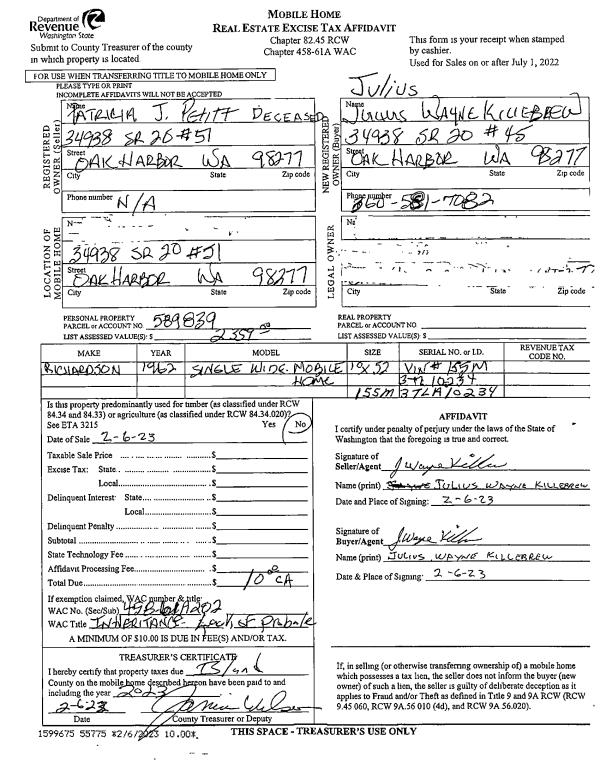 Department of
Revenue
Washington State
MOBILE HOME
REAL ESTATE EXCISE TAX AFFIDAVIT
Chapter 82.45 RCW
Chapter 458-61A WAC
Submit to County Treasurer of the county
in which property is located.
This form is your receipt when stamped
by cashier.
Used for Sales on or after July 1, 2022
FOR USE WHEN TRANSFERRING TITLE TO MOBILE HOME ONLY
PLEASE TYPE OR PRINT
INCOMPLETE AFFIDAVITS WILL NOT BE ACCEPTED
Julius
REGISTERED OWNER (Seller)
Name
PATRICIA J. PETITT DECEASED
34938 SR 20 #51
Street
OAK HARBOR WA 98277
City State Zip code
Phone number N/A
NEW REGISTERED OWNER (Buyer)
Name
JULIUS WAYNE KILLEBREW
34938 SR 20 #45
Street
OAK HARBOR WA 98277
City State Zip code
Phone number
360-581-7082
LOCATION OF MOBILE HOME
34938 SR 20 #51
Street
OAK HARBOR WA 98277
City State Zip code
LEGAL OWNER
Street
City State Zip code
PERSONAL PROPERTY
PARCEL or ACCOUNT NO. 589839
LIST ASSESSED VALUE(S): $ 2359 00
REAL PROPERTY
PARCEL or ACCOUNT NO.
LIST ASSESSED VALUE(S): $
MAKE YEAR MODEL SIZE SERIAL NO. or I.D. REVENUE TAX CODE NO.
RICHARDSON 1962 SINGLE WIDE MOBILE 10X52 VIN # 155M
HOME 3TL10234
155M3TLA10234
Is this property predominantly used for timber (as classified under RCW
84.34 and 84.33) or agriculture (as classified under RCW 84.34.020)?
See ETA 3215 Yes No
Date of Sale 2-6-23
Taxable Sale Price $
Excise Tax: State $
Local $
Delinquent Interest: State $
Local $
Delinquent Penalty $
Subtotal $
State Technology Fee $
Affidavit Processing Fee $
Total Due $ 10 00 CA
If exemption claimed, WAC number & title:
WAC No. (Sec/Sub) 458-61A202
WAC Title INHERITANCE- Lack of Probate
A MINIMUM OF $10.00 IS DUE IN FEE(S) AND/OR TAX.
AFFIDAVIT
I certify under penalty of perjury under the laws of the State of
Washington that the foregoing is true and correct.
Signature of
Seller/Agent
Name (print) JULIUS WAYNE KILLEBREW
Date and Place of Signing: 2-6-23
Signature of
Buyer/Agent
Name (print) JULIUS WAYNE KILLEBREW
Date & Place of Signing: 2-6-23
TREASURER'S CERTIFICATE
I hereby certify that property taxes due Island
County on the mobile home described hereon have been paid to and
including the year 2023
2-6-23
Date County Treasurer or Deputy
If, in selling (or otherwise transferring ownership of) a mobile home
which possesses a tax lien, the seller does not inform the buyer (new
owner) of such a lien, the seller is guilty of deliberate deception as it
applies to Fraud and/or Theft as defined in Title 9 and 9A RCW (RCW
9.45 060, RCW 9A.56 010 (4d), and RCW 9A 56.020).
1599675 55775 *2/6/2023 10.00*
THIS SPACE - TREASURER'S USE ONLY